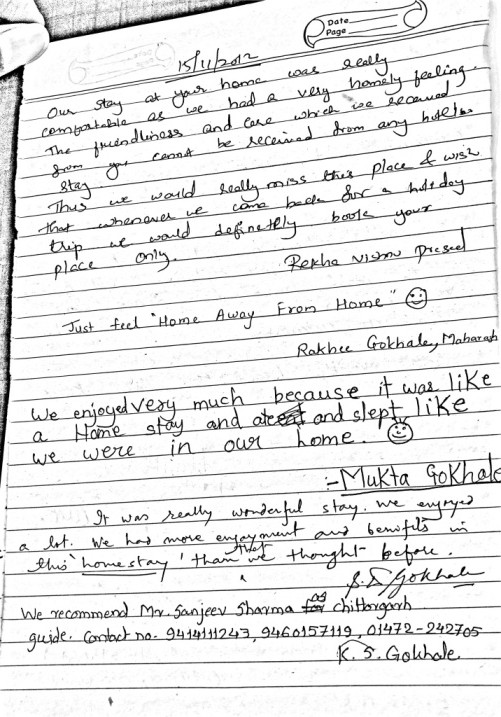 Date
Page
15/11/2012
Our stay at your home was really
comfortable as we had a very homely feeling.
The friendliness and care which we received
from you cannot be received from any hotels
stay.
Thus we would really miss this place & wish
that whenever we come back for a holiday
trip we would definetely book your
place only.
Rekha Vishnu
Just feel "Home Away From Home" ☺
Rakhee Gokhale, Maharash
We enjoyed very much because it was like
a Home stay and ate and slept like
we were in our home. ☺
:- Mukta Gokhale
It was really wonderful stay. We enjoyed
a lot. We had more enjoyment and benifits in
this 'home stay' than that we thought before.
S. S. Gokhale
We recommend Mr. Sanjeev Sharma as Chittorgarh
guide. Contact no. 9414111243, 9460157119, 01472-242705
K. S. Gokhale.